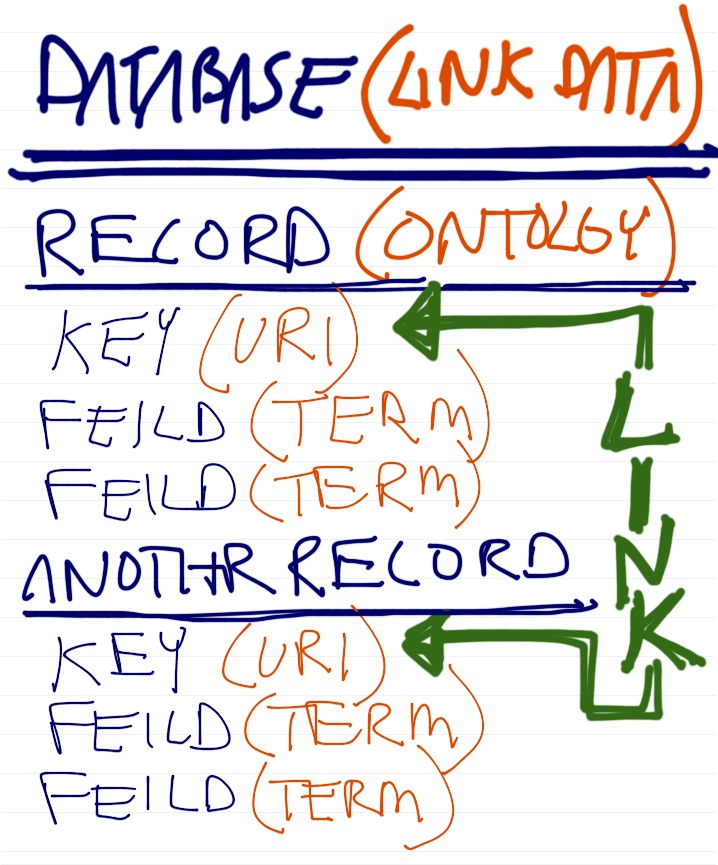 DATABASE (LINK DATA)
RECORD (ONTOLGY)
KEY (URI)
FEILD (TERM)
FEILD (TERM)
LINK
ANOTHR RECORD
KEY (URI)
FEILD (TERM)
FEILD (TERM)